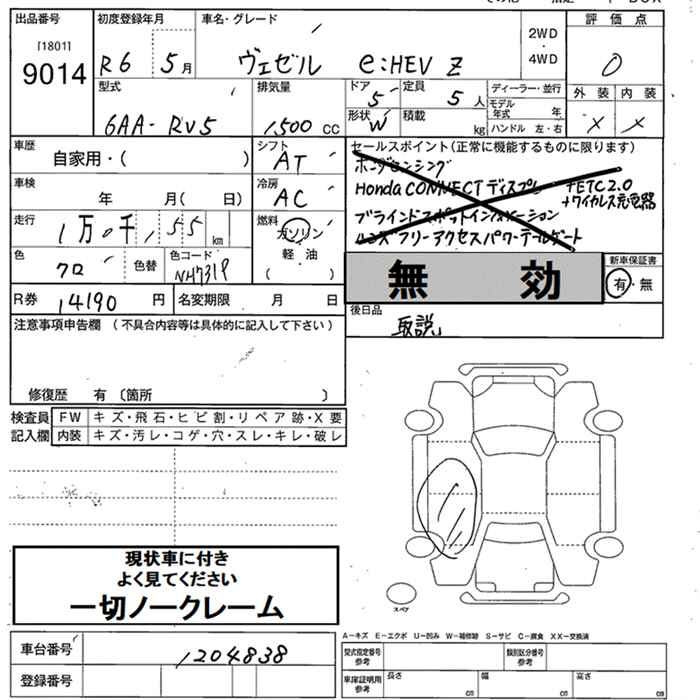 出品番号 初度登録年月 車名・グレード 評価点
[1801]
9014 R6 5月 ヴェゼル e:HEV Z 2WD・4WD 0
型式 排気量 ドア 5 定員 5人 ディーラー・並行 外装 内装
6AA-RV5 1,500 CC 形状 W 積載 kg モデル年式 年 ハンドル 左・右 × ×
車歴 自家用・( ) シフト AT セールスポイント(正常に機能するものに限ります)
ホンダセンシング
車検 年 月( 日) 冷房 AC Honda CONNECT ディスプレー +ETC2.0
+ワイヤレス充電器
走行 1万0千,55 km 燃料 ガソリン ブラインドスポットインフォメーション
軽・油 ハンズフリーアクセスパワーテールゲート
色 クロ 色替 色コード NH731P ( ) 無効 新車保証書
有・無
R券 14190円 名変期限 月 日
注意事項申告欄 (不具合内容等は具体的に記入して下さい) 後日品
取説
修復歴 有〔箇所 〕
検査員 FW キズ・飛石・ヒビ割・リペア跡・X要
記入欄 内装 キズ・汚レ・コゲ・穴・スレ・キレ・破レ
現状車に付き
よく見てください
一切ノークレーム
スペア
A―キズ E―エクボ U―凹み W―補修跡 S―サビ C―腐食 XX―交換済
車台番号 1204838 型式指定番号 参考 類別区分番号 参考
登録番号 車庫証明用 参考 長さ cm 幅 cm 高さ cm